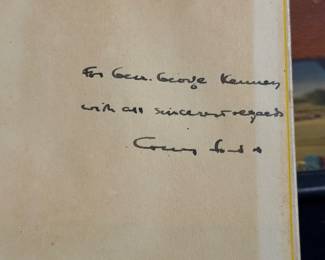 For Gen. George Kenney
with all sincerest regards